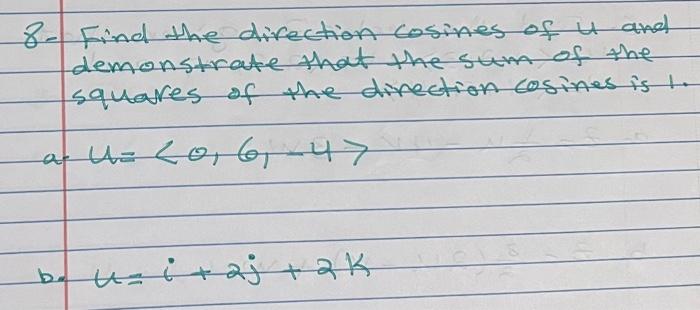 8- Find the direction cosines of u and
demonstrate that the sum of the
squares of the direction cosines is 1.
a- u = <0, 6, -4>
b- u = i + 2j + 2k